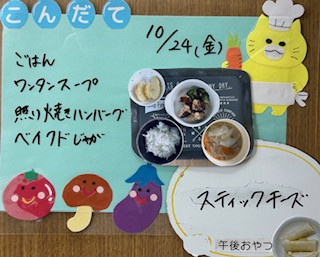 こんだて
10/24(金)
ごはん
ワンタンスープ
照り焼きハンバーグ
ベイクドじゃが
スティックチーズ
午後おやつ